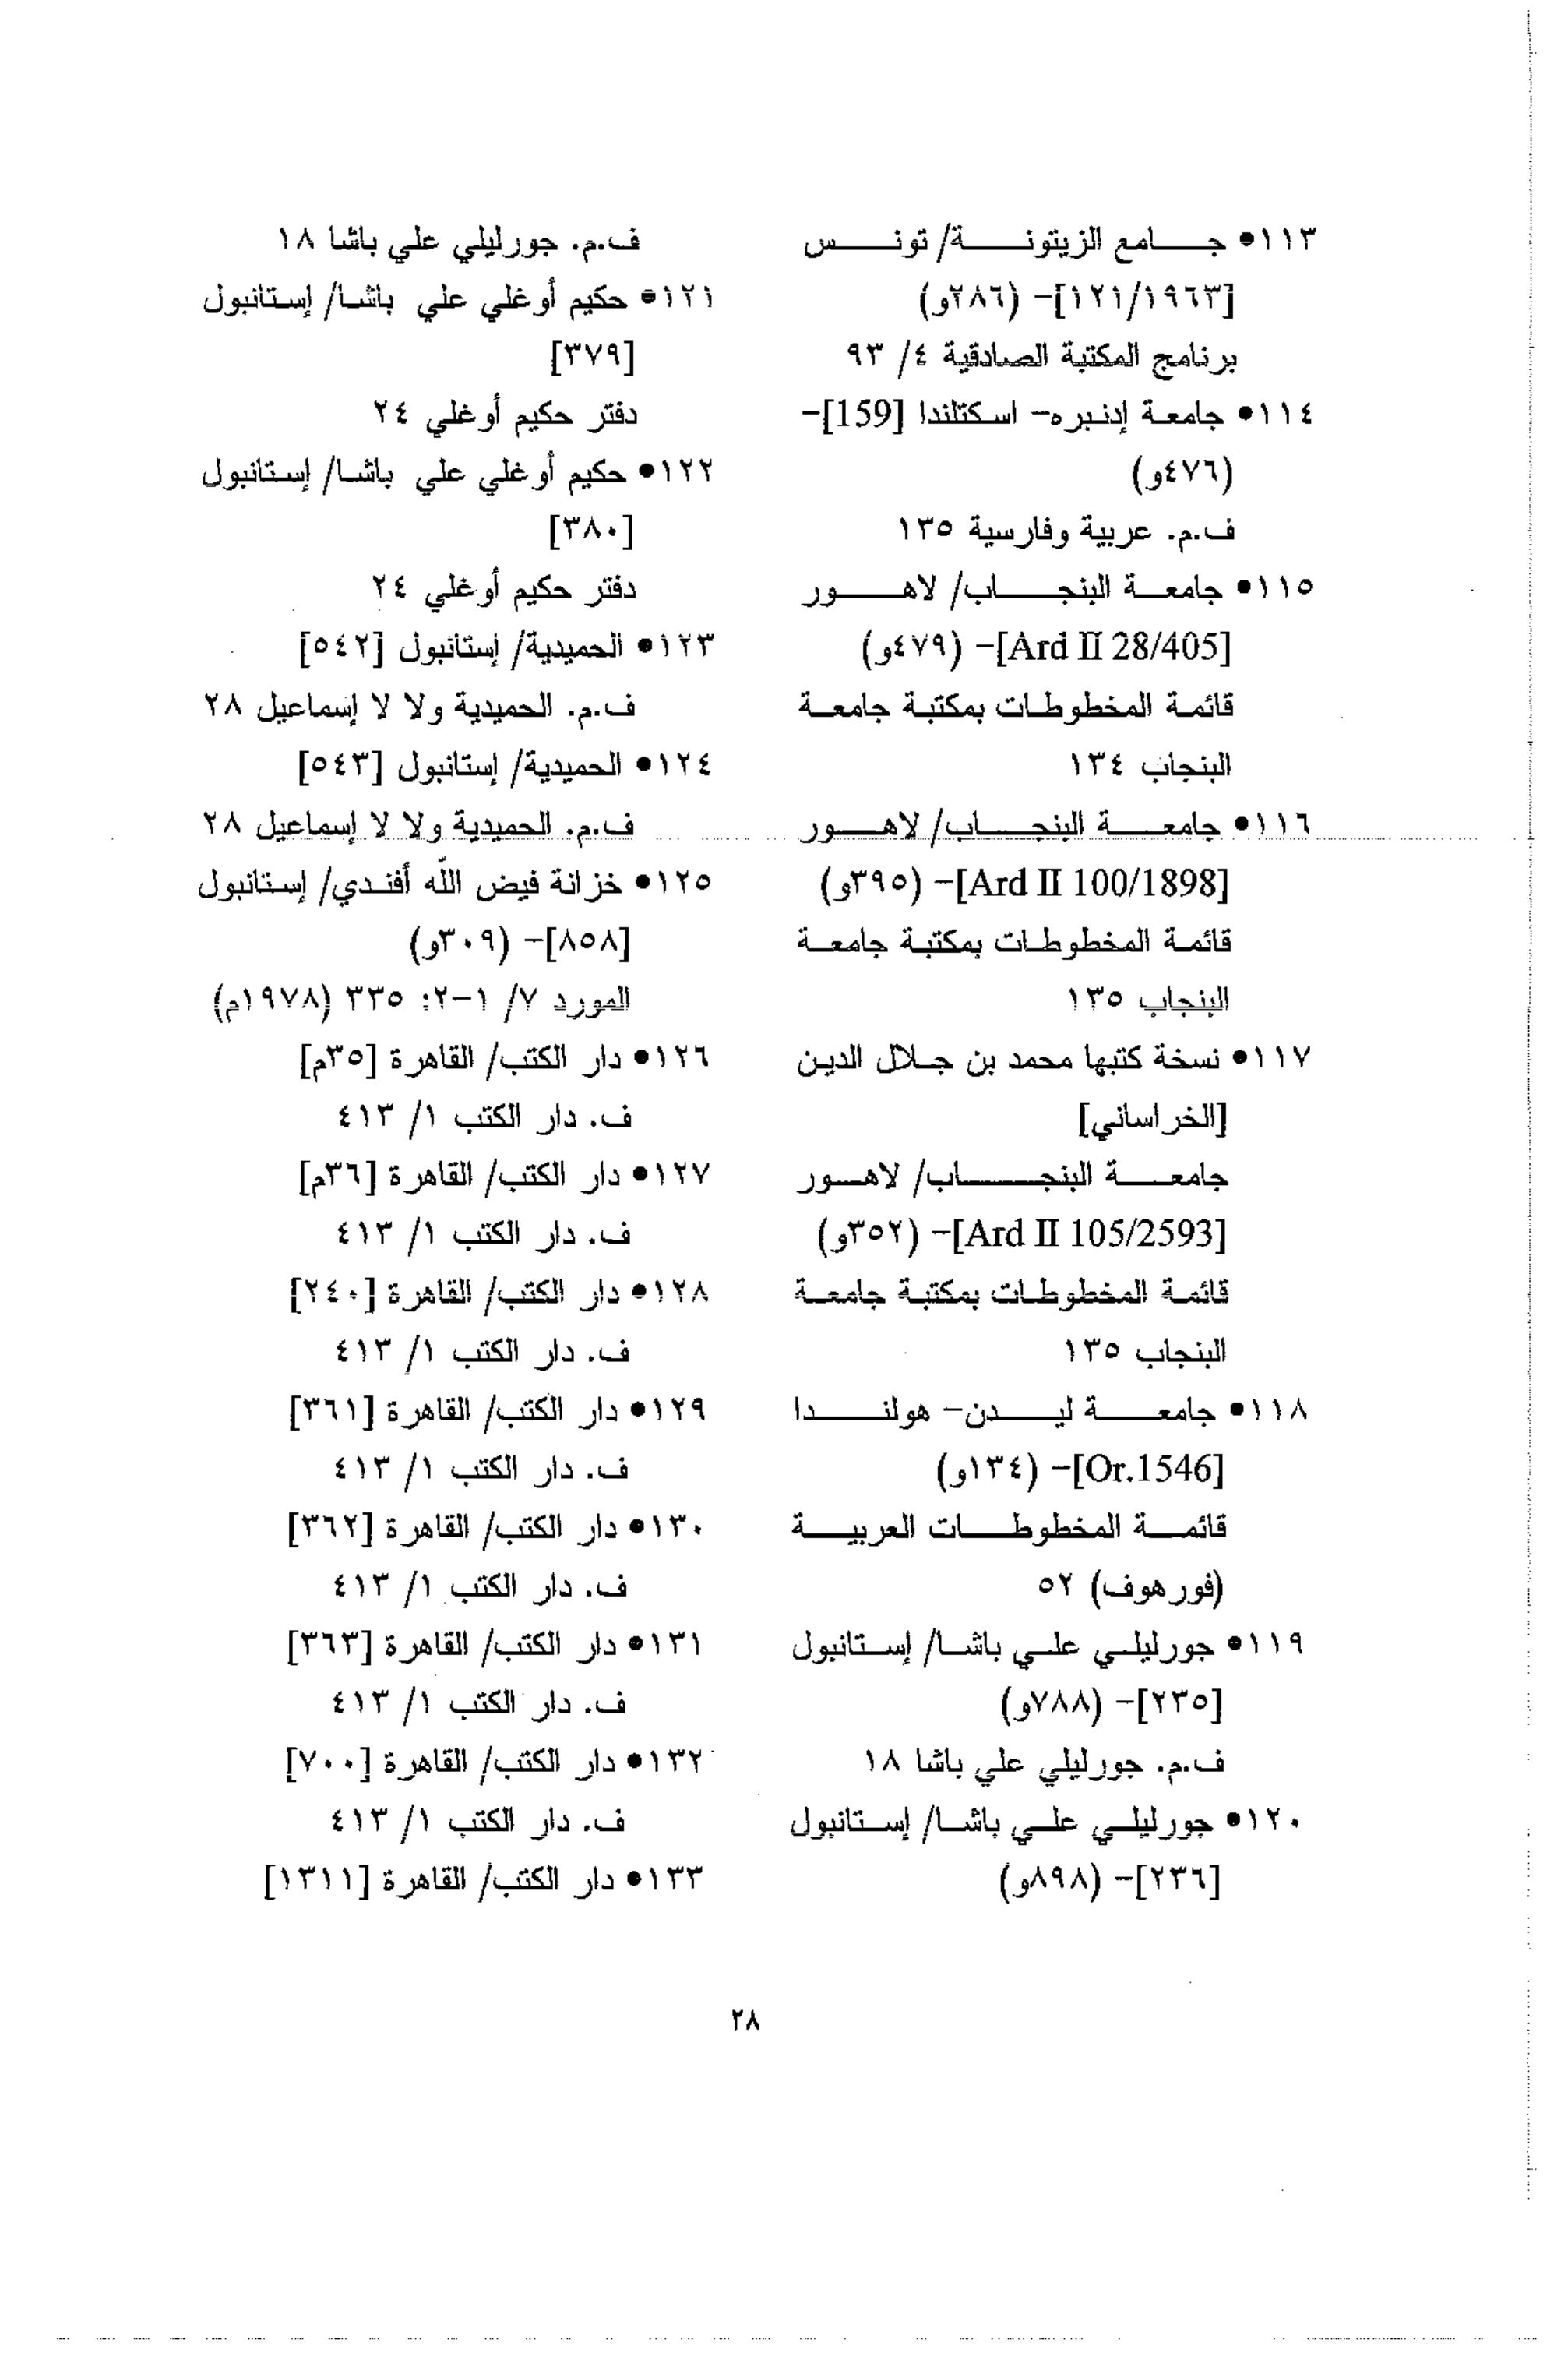 ١١٣• جامع الزيتونة/ تونس
[١٢١/١٩٦٣]- (٢٨٦و)
برنامج المكتبة الصادقية ٤/ ٩٣
١١٤• جامعة إدنبره- اسكتلندا [159]-
(٤٧٦و)
ف.م. عربية وفارسية ١٣٥
١١٥• جامعة البنجاب/ لاهور
[Ard II 28/405]- (٤٧٩و)
قائمة المخطوطات بمكتبة جامعة
البنجاب ١٣٤
١١٦• جامعة البنجاب/ لاهور
[Ard II 100/1898]- (٣٩٥و)
قائمة المخطوطات بمكتبة جامعة
البنجاب ١٣٥
١١٧• نسخة كتبها محمد بن جلال الدين
[الخراساني]
جامعة البنجاب/ لاهور
[Ard II 105/2593]- (٣٥٢و)
قائمة المخطوطات بمكتبة جامعة
البنجاب ١٣٥
١١٨• جامعة ليدن- هولندا
[Or.1546]- (١٣٤و)
قائمة المخطوطات العربية
(فورهوف) ٥٢
١١٩• جورليلي علي باشا/ إستانبول
[٢٣٥]- (٧٨٨و)
ف.م. جورليلي علي باشا ١٨
١٢٠• جورليلي علي باشا/ إستانبول
[٢٣٦]- (٨٩٨و)
ف.م. جورليلي علي باشا ١٨
١٢١• حكيم أوغلي علي باشا/ إستانبول
[٣٧٩]
دفتر حكيم أوغلي ٢٤
١٢٢• حكيم أوغلي علي باشا/ إستانبول
[٣٨٠]
دفتر حكيم أوغلي ٢٤
١٢٣• الحميدية/ إستانبول [٥٤٢]
ف.م. الحميدية ولا لا إسماعيل ٢٨
١٢٤• الحميدية/ إستانبول [٥٤٣]
ف.م. الحميدية ولا لا إسماعيل ٢٨
١٢٥• خزانة فيض اللّه أفندي/ إستانبول
[٨٥٨]- (٣٠٩و)
المورد ٧/ ١-٢: ٣٣٥ (١٩٧٨م)
١٢٦• دار الكتب/ القاهرة [٣٥م]
ف. دار الكتب ١/ ٤١٣
١٢٧• دار الكتب/ القاهرة [٣٦م]
ف. دار الكتب ١/ ٤١٣
١٢٨• دار الكتب/ القاهرة [٢٤٠]
ف. دار الكتب ١/ ٤١٣
١٢٩• دار الكتب/ القاهرة [٣٦١]
ف. دار الكتب ١/ ٤١٣
١٣٠• دار الكتب/ القاهرة [٣٦٢]
ف. دار الكتب ١/ ٤١٣
١٣١• دار الكتب/ القاهرة [٣٦٣]
ف. دار الكتب ١/ ٤١٣
١٣٢• دار الكتب/ القاهرة [٧٠٠]
ف. دار الكتب ١/ ٤١٣
١٣٣• دار الكتب/ القاهرة [١٣١١]
٢٨